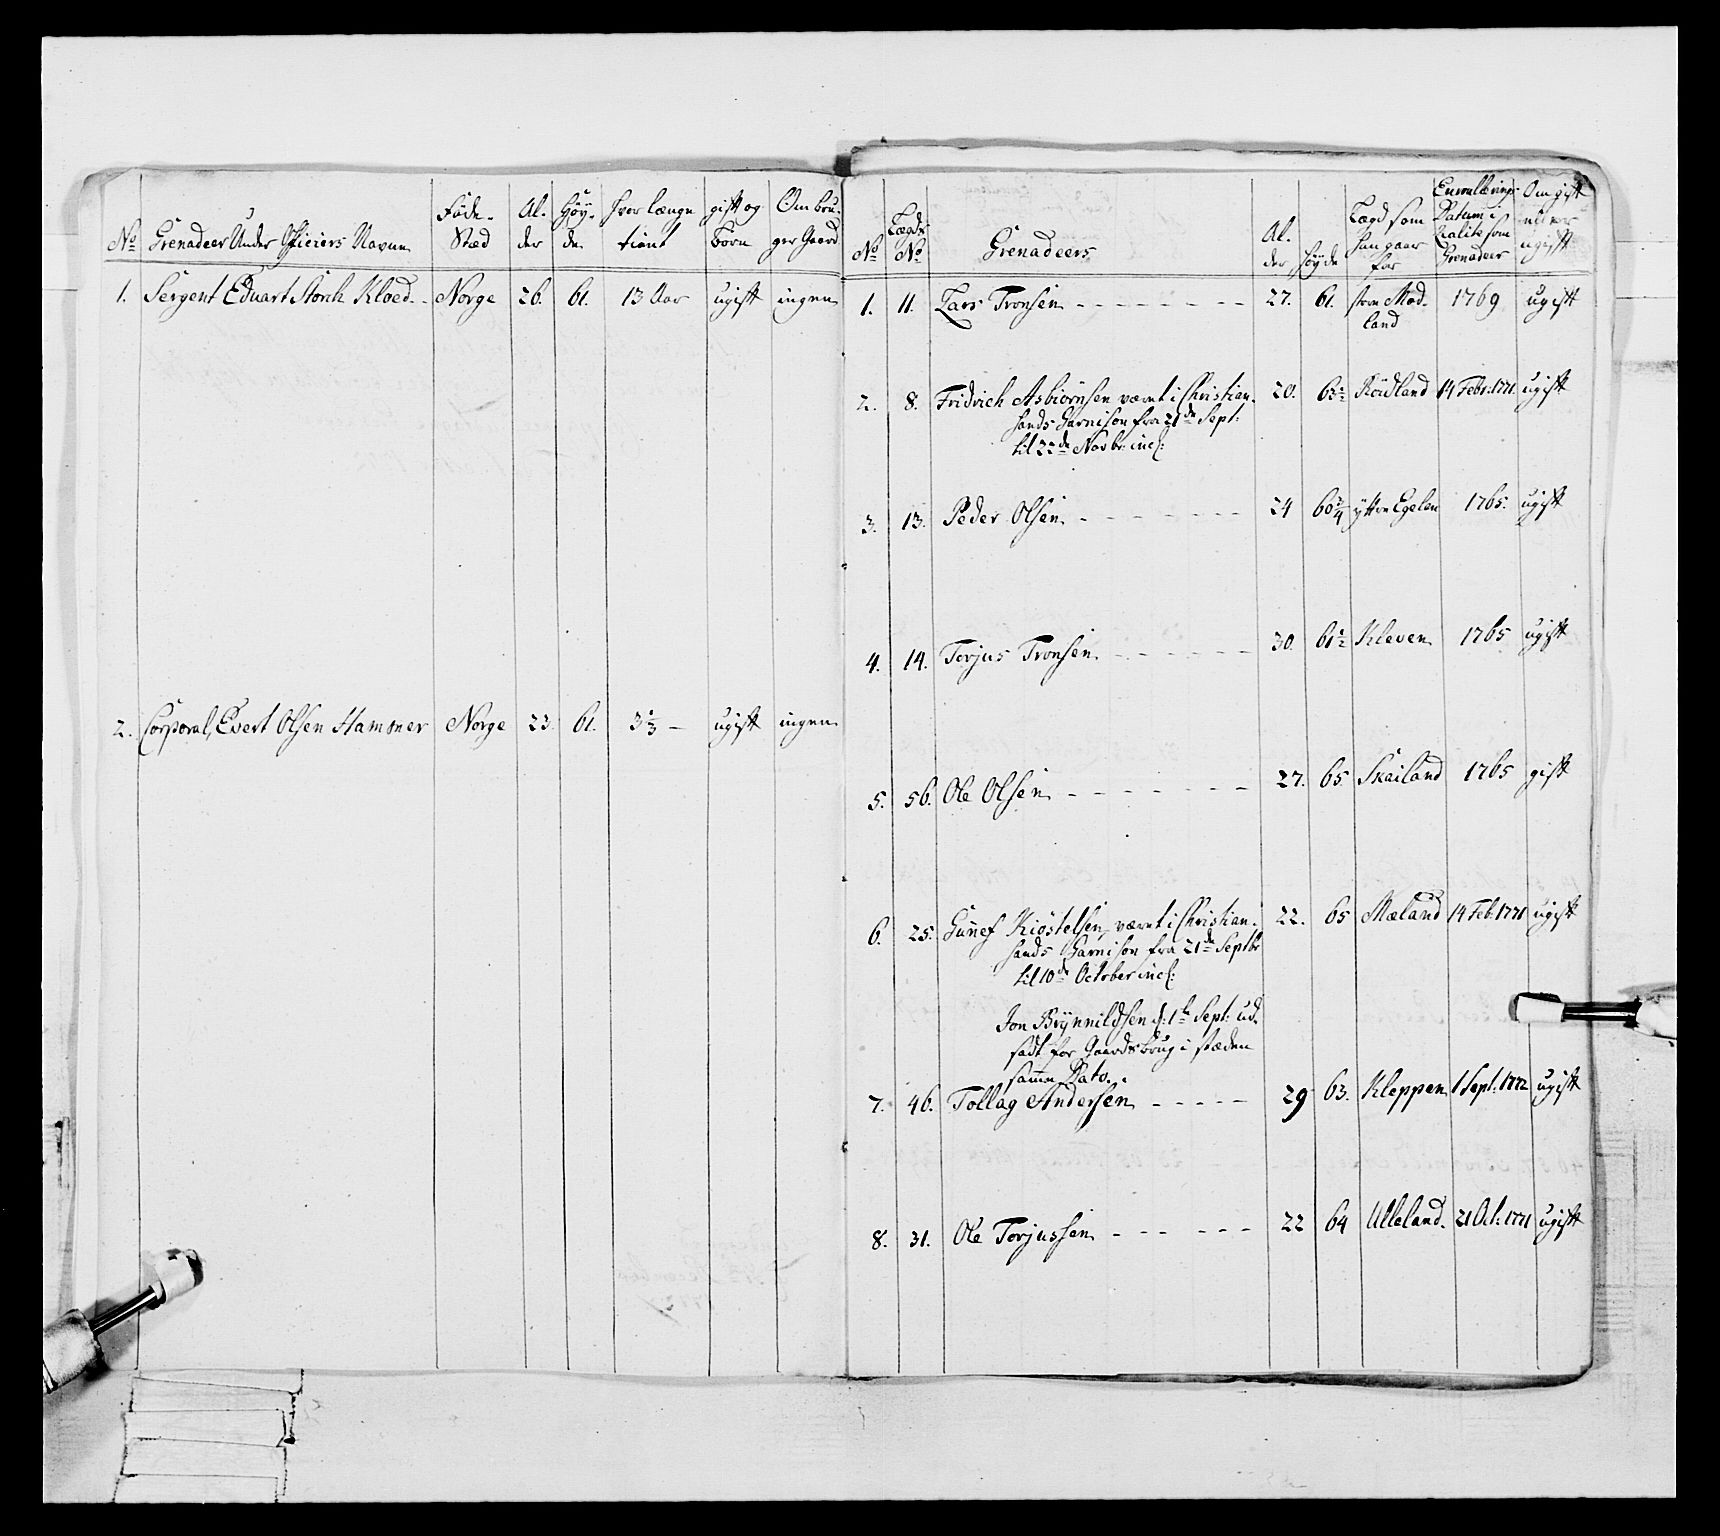 No Grenadeer Under Officiers Navne Føde-Stæd Al-der Høy-de hvor længe tient gift og Børn Om bru-ger Gaard
1. Sergent Eduart Storch Kloed Norge 26. 61. 13 Aar ugift ingen
2. Corporal, Evert Olsen Hammer Norge 23 61. 3 1/3 — ugift ingen
No Lægds No Grenadeers Al-der Høyde Lægd som han gaar for Enrullerings Datum i Qualite som Grenadeer Om gift eller ugift
1. 11. Lars Tronsen 27. 61. 1769 ugift
land
2. 8. Fridrich Asbiørnsen været i Christian- 20. 63 1/2 Røidland 14 Febr: 1771. ugift
sands Garnison fra 21de Sept:
til 22de Novbr: incl:
3. 13. Peder Olsen 24 60 3/4 yttre Egelan 1765. ugift
4. 14. Torjus Tronsen 30. 61 1/2 Kleven 1765 ugift
5. 56. Ole Olsen 27. 65 Skailand 1765 gift
6. 25. Gunef Kiøstelsen, været i Christian- 22. 65 Mæland 14 Feb: 1771 ugift
sands Garnison fra 21de Septbr
til 10de October incl:
Jon Brynnildsen d: 1te Sept: ud-
sadt for Gaardsbrug i stæden
samme Dato.
7. 46. Tollag Andersen 29 63. Kleppen 1 Sept: 1772 ugift
8. 31. Ole Torjussen 22 64 Ulleland. 21 Oct: 1771 ugift